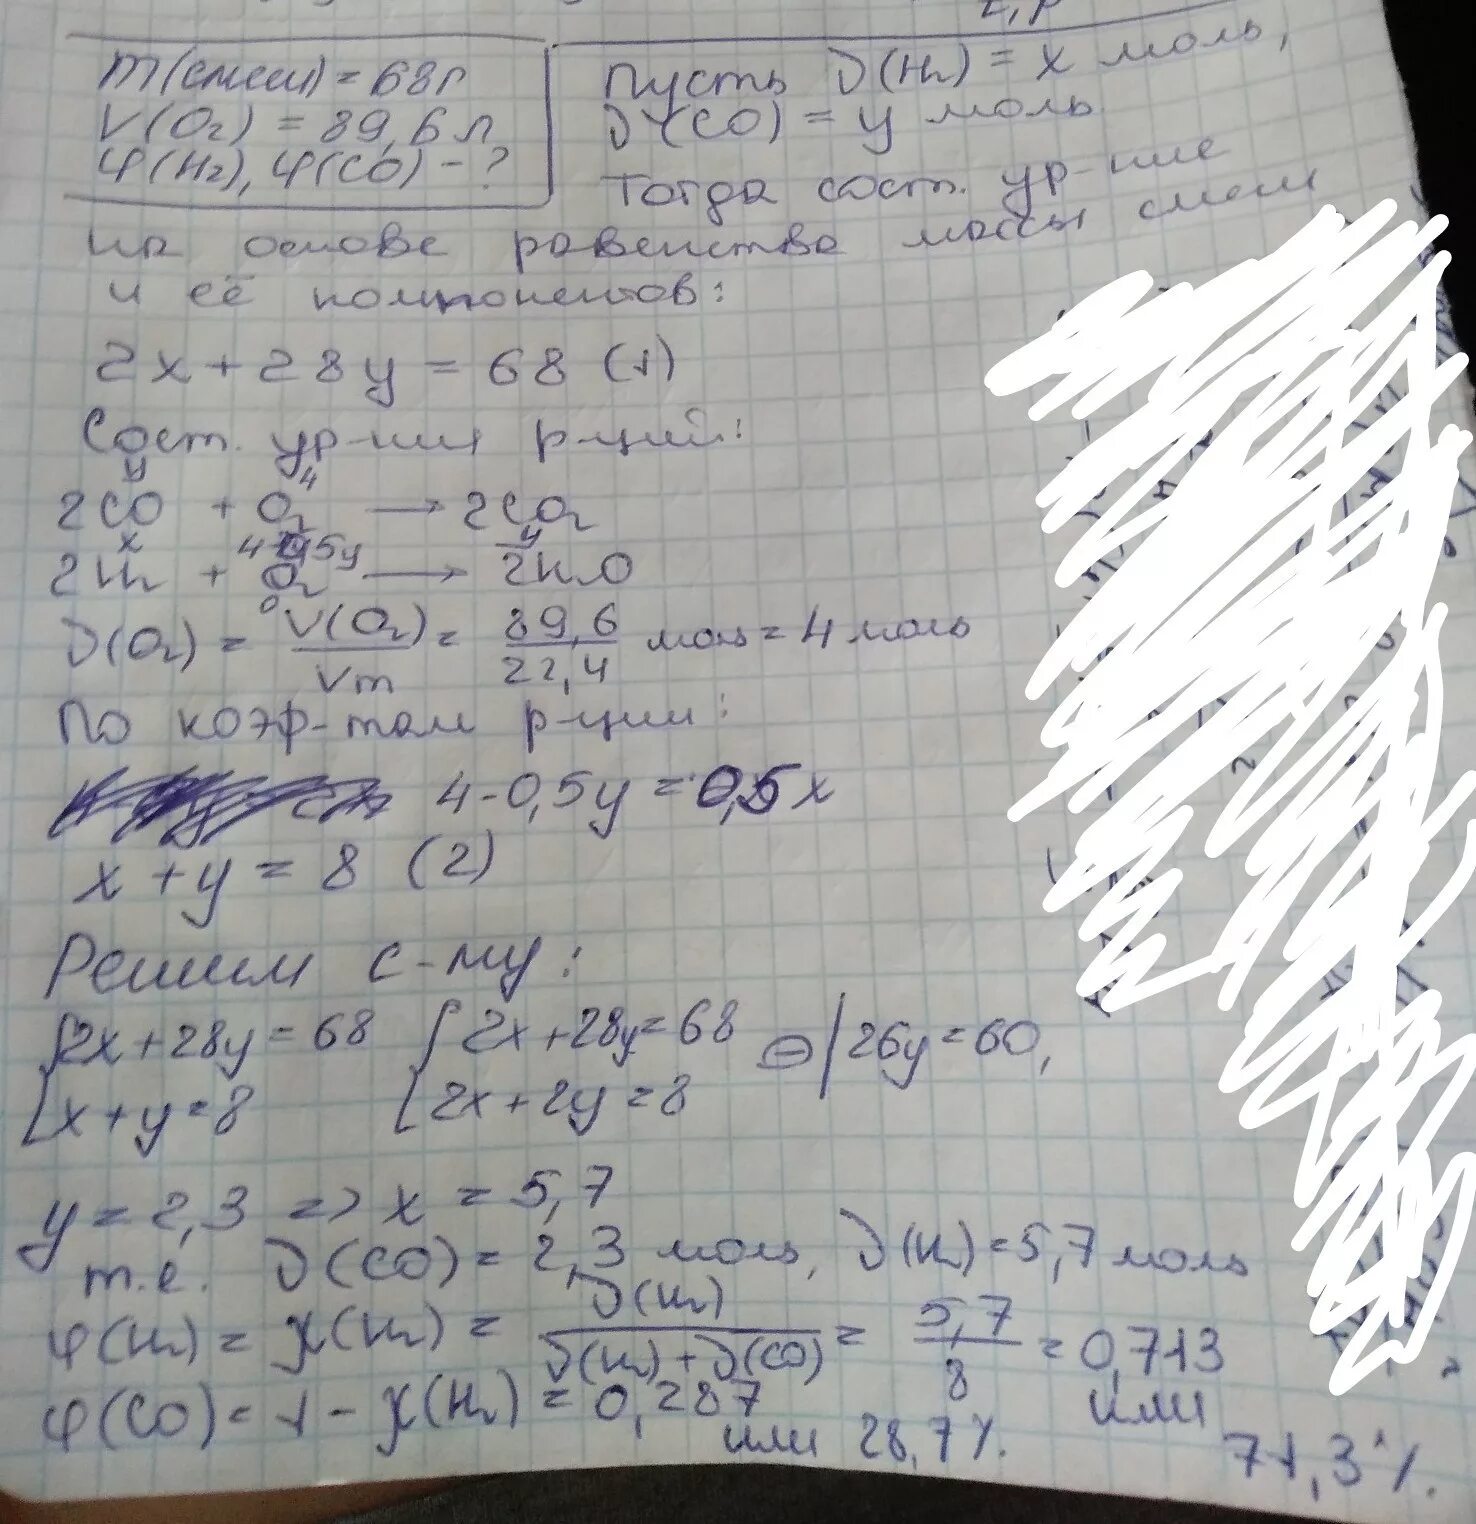 m(смеси) = 68г
V(O₂) = 89,6 л
φ(H₂), φ(CO) - ?
Пусть ν(H₂) = x моль,
ν(CO) = y моль
Тогда сост. ур-ние
на основе равенства массы смеси
и её компонентов:
2x + 28y = 68 (1)
Сост. ур-ния р-ций:
y 4
2CO + O₂ → 2CO₂
x 4-0,5y y
2H₂ + O₂ → 2H₂O
ν(O₂) = V(O₂)/Vm = 89,6/22,4 моль = 4 моль
По коэф-там р-ции:
4-0,5y = 0,5x
x + y = 8 (2)
Решим с-му:
{2x + 28y = 68 {2x + 28y = 68 ⊖| 26y = 60,
{x + y = 8 {2x + 2y = 8
y = 2,3 => x = 5,7
т.е. ν(CO) = 2,3 моль, ν(H₂) = 5,7 моль
φ(H₂) = χ(H₂) = ν(H₂)/(ν(H₂) + ν(CO)) = 5,7/8 = 0,713
или 71,3%.
φ(CO) = 1 - χ(H₂) = 0,287
или 28,7%.